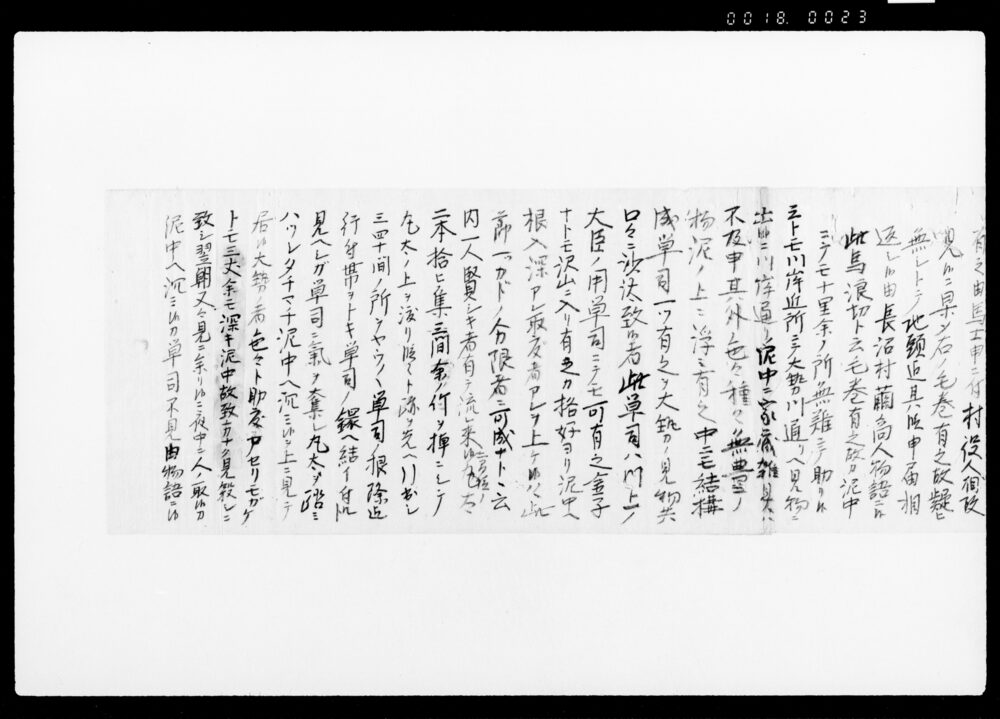 0018. 0023
有之由馬士申ニ付村役人相改
見ルニ果シ右ノ毛巻有之故疑ヒ
無シトテ地頭迄其段申届相
返シ候由長沼村繭商人物語ニ候
此馬浪切ト云毛巻有之故カ泥中
ニテモ十里余ノ所無難ニテ助リ候
ミトモ川岸近所ニテ大勢川通リヘ見物ニ
出候ニ川岸通ノ泥中ニ家蔵雑具ハ
不及申其外色々種々無量ノ
物泥ノ上ニ浮ミ有之中ニモ結構
成単司一ツ有之ヲ大勢ノ見物共
口々ニ沙汰致候者此単司ハ川上ノ
大臣ノ用単司ニテモ可有之金子
ナトモ沢山ニ入リ有之カ格好ヨリ泥中ヘ
根入深シ取度者アレヲ上ケ候ハヽ此
節一カドノ分限者ニ可成ナト云
内一人賢シキ者有テ流レ来候丸太
二本拾ヒ集三間余ノ竹ヲ棹ニシテ
丸太ノ上ヲ渡リ段々ト跡ヲ先ヘ引出シ
三四十間ノ所ヲヤウ〳〵単司根際迄
行付帯ヲトキ単司ノ鐶ヘ結イ付候
見ヘシガ単司ニ氣ヲ奪レ丸太ヲ踏ミ
ハツシタチマチ泥中ヘ沉ミ候ヲ上ニ見テ
居候大勢ノ者色々ト助度アセリモガケ
トモ三丈余モ深キ泥中故致方ナク見殺シニ
致シ翌朝又々見ニ参リ候ニ夜中ニ人ノ取候カ
泥中ヘ沉ミ候カ単司不見由物語ニ候